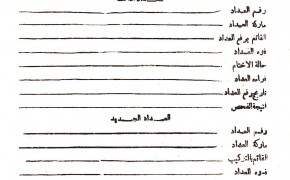 رقم العداد
ماركة العداد
القائم برفع العداد
قوة العداد
حالة الاختام
قراءة العداد
تاريخ رفع العداد
نتيجة الفحص
العداد الجديد
رقم العداد
ماركة العداد
القائم بالتركيب
قوة العداد